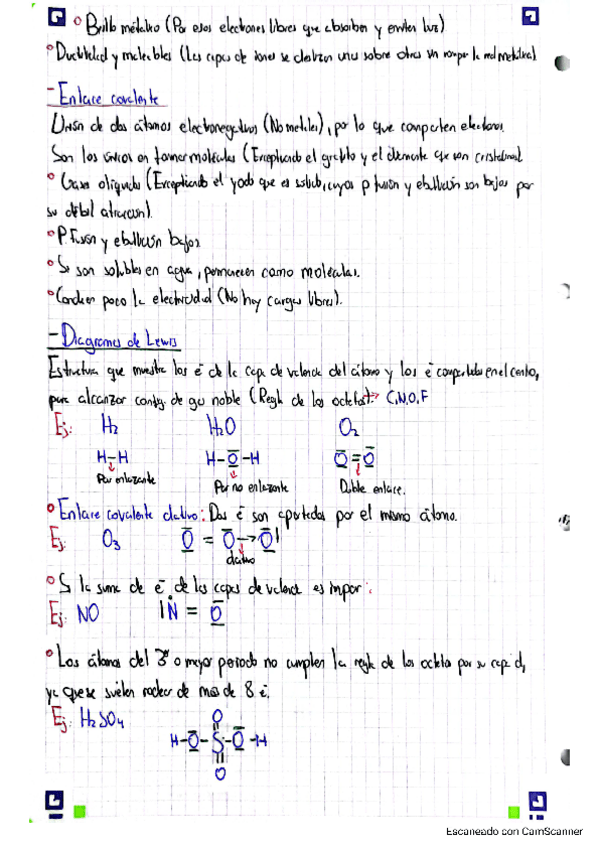 ° Brillo metálico (Por esos electrones libres que absorben y emiten luz)
° Ductilidad y maleables (Las capas de iones se deslizan una sobre otras sin romper la red metálica)
- Enlace covalente
Unión de dos átomos electronegativos (No metales), por lo que comparten electrones.
Son los únicos en formar moléculas (Exceptuando el grafito y el diamante que son cristalinos)
° Gases o líquidos (Exceptuando el yodo que es sólido, cuyos p fusión y ebullición son bajos por
su débil atracción).
° P. Fusión y ebullición bajos
° Si son solubles en agua, permanecen como moléculas.
° Conducen poco la electricidad (No hay cargas libres).
- Diagramas de Lewis
Estructura que muestra los é de la capa de valencia del átomo y los é compartidos en el centro,
para alcanzar config. de gas noble (Regla de los octetos) → C, N, O, F
Ej: H₂ H₂O O₂
H-H H-O-H O=O
Par enlazante Par no enlazante Doble enlace.
° Enlace covalente dativo: Dos é son aportados por el mismo átomo.
Ej: O₃ O = O → O
dativo
° Si la suma de é de las capas de valencia es impar:
Ej: NO N = O
° Los átomos del 3º o mayor periodo no cumplen la regla de los octetos por su capa d,
ya que se suelen rodear de más de 8 é.
Ej: H₂SO₄
O
H-O-S-O-H
O
Escaneado con CamScanner